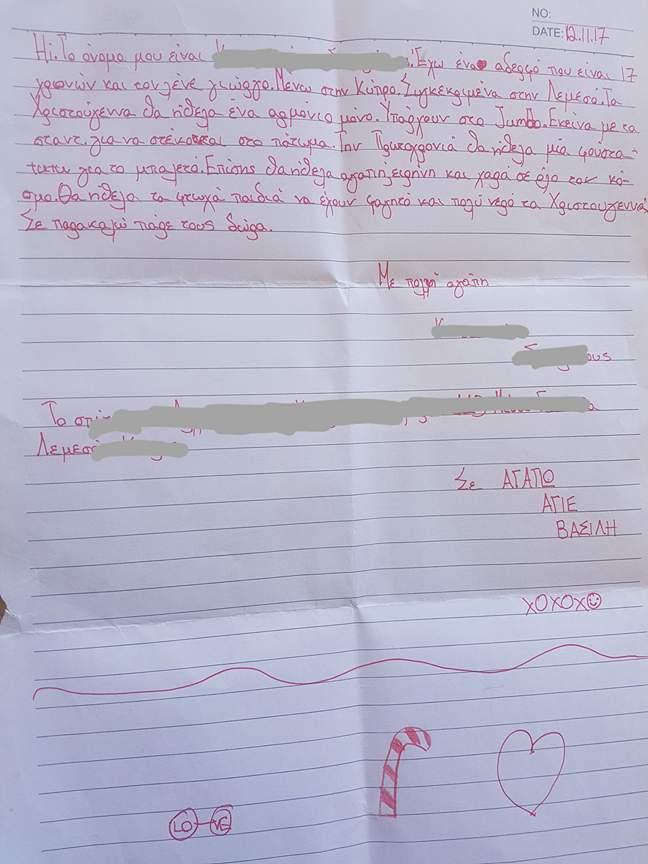 NO:
DATE: 12.11.17
Hi. Το όνομα μου είναι . Έχω ένα αδερφό που είναι 17
χρονών και τον λένε γιώργο. Μένω στην Κύπρο. Συγκεκριμένα στην Λεμεσό. Τα
Χριστούγεννα θα ήθελα ένα αρμόνιο μόνο. Υπάρχουν στο Jumbo. Εκείνα με τα
σταντ. για να στέκονται στο πάτωμα. Την Πρωτοχρονιά θα ήθελα μία φούστα-
τουτου για το μπαλέτο. Επίσης θα ήθελα αγαπη, ειρήνη και χαρά σε όλο τον κό-
σμο. Θα ήθελα τα φτωχά παιδιά να έχουν φαγητό και πολύ νερό τα Χριστουγεννα.
Σε παρακαλώ πάρε τους δώρα.
Με πολλή αγάπη
ους
Το
Λεμεσ
Σε ΑΓΑΠΩ
ΑΓΙΕ
ΒΑΣΙΛΗ
XOXOX☺
LO-VE